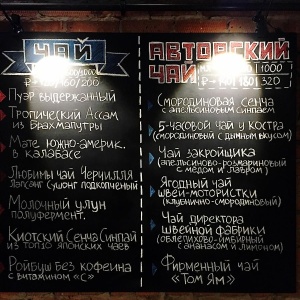 ЧАЙ
Пуэр выдержанный
Тропический Ассам
из Брахмапутры
Мате южно-америк.
в калабасе
Любимый чай Черчилля
Лапсанг Сушонг подкопчёный
Молочный улун
полуфермент.
Киотский Сенча Синпай
из топ10 японских чаев
Ройбуш Без кофеина
с витамином «С»
АВТОРСКИЙ
ЧАЙ
1000
320
Смородиновая сенча
с апельсиновым синпаем
5-часовой чай у костра
(смородиновый с дымным вкусом)
Чай закройщика
(апельсиново-розмариновый
с мёдом и лавром)
Ягодный чай
швеи-мотористки
(клубнично-смородиновый)
Чай директора
швейной фабрики
(облепихово-имбирный
с ананасом и лимоном)
Фирменный чай
«Том Ям»